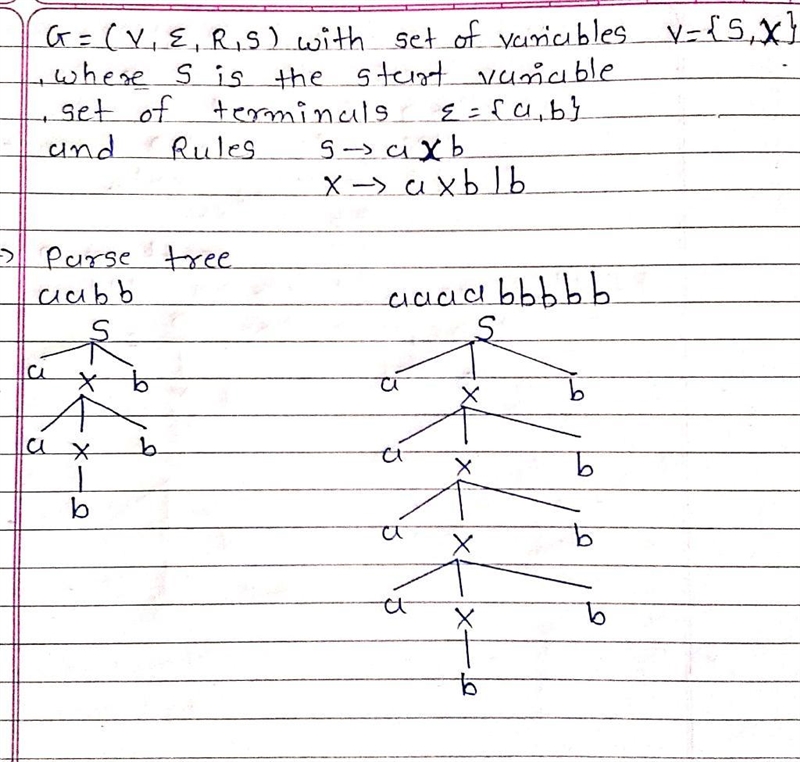 G = (V, Σ, R, S) with set of variables V={S,X}
, where S is the start variable
, set of terminals Σ = {a,b}
and Rules S → a X b
X → a X b | b
=> Parse tree
a a b b
a a a a b b b b b
S S
a X b a X b
a X b a X b
b a X b
a X b
b